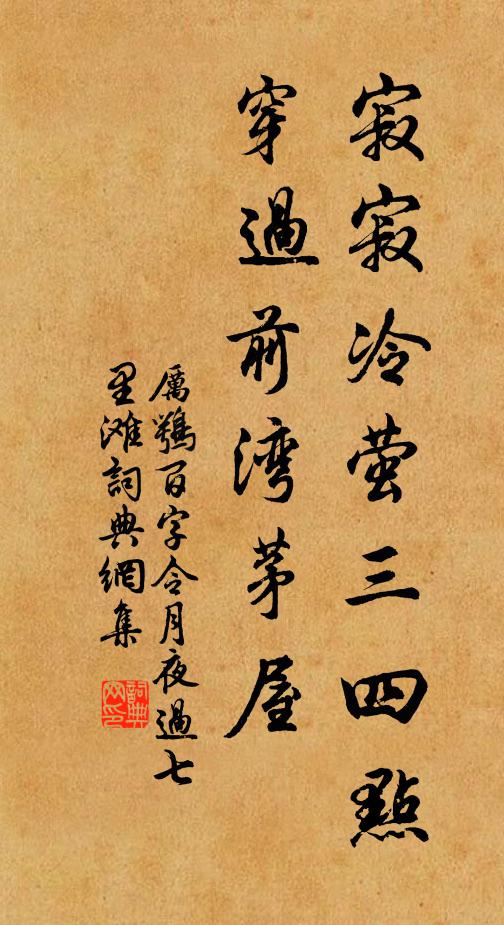 寂寂冷萤三四點
穿過前湾茅屋
厲鶚百字令月夜過七
里滩詞典網集
詞典
网印